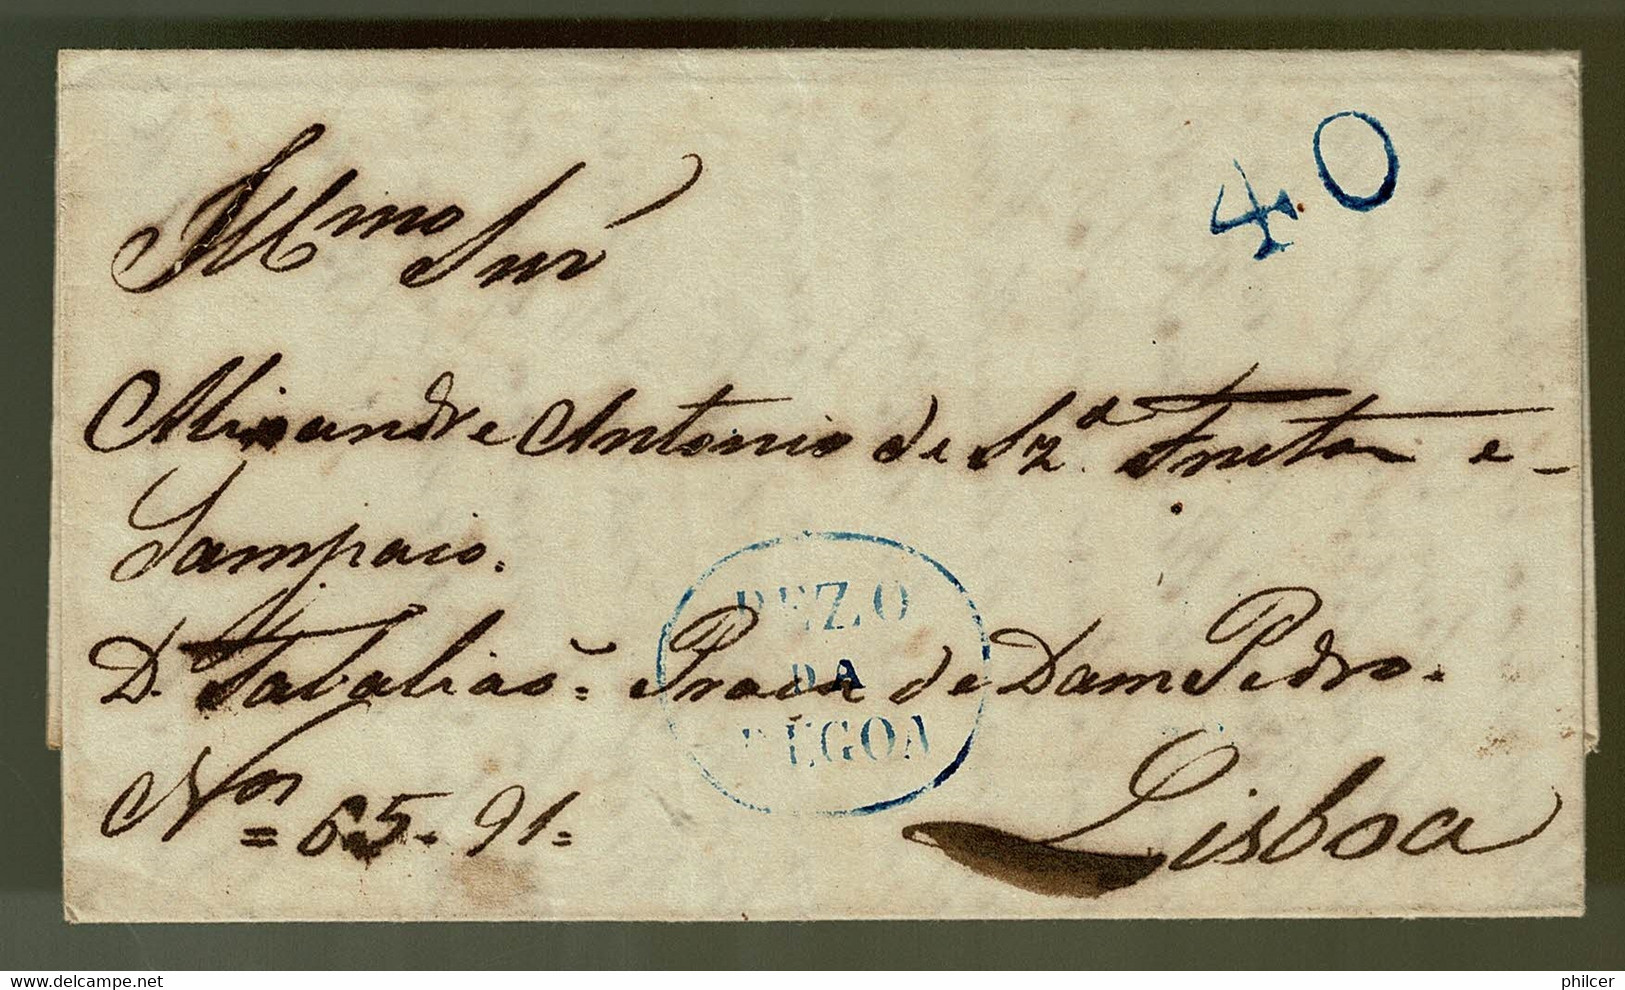 Illmo Snr
40
Alixandre Antonio de Sza Freta e
Sampaio.
D. Tabalião = Praça de Dam Pedro.
PEZO
DA
REGOA
Nos = 65 - 91 =
Lisboa
delcampe.net
philcer